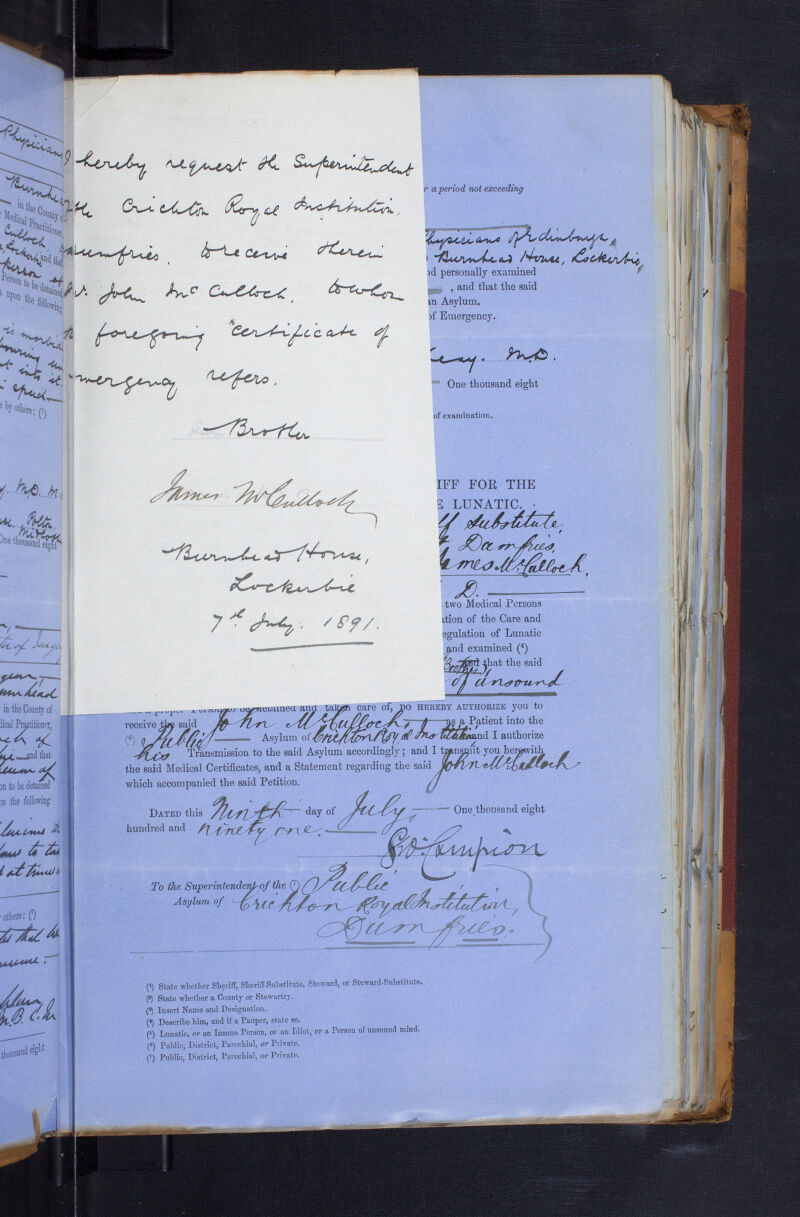 I hereby request the Superintendent
the Crichton Royal Institution,
Dumfries, to receive therein
Dr. John McCulloch, to whom
foregoing certificate of
emergency refers.
Brother
James McCulloch
Burnhead House,
Lockerbie
7th July. 1891.
r a period not exceeding
Physicians of Edinburgh,
Burnhead House, Lockerbie,
nd personally examined
, and that the said
an Asylum.
of Emergency.
M.D.
One thousand eight
of examination.
IFF FOR THE
E LUNATIC.
ff Substitute,
Dumfries,
James McCulloch,
D.
two Medical Persons
ation of the Care and
egulation of Lunatic
and examined (4)
(Brother) and that the said
of unsound
a proper Person to be detained and taken care of, DO HEREBY AUTHORIZE you to
receive the said John McCulloch, as a Patient into the
(6) a Public Asylum of Crichton Royal Institution and I authorize
his Transmission to the said Asylum accordingly; and I transmit you herewith
the said Medical Certificates, and a Statement regarding the said John McCulloch
which accompanied the said Petition.
DATED this Ninth day of July, One thousand eight
hundred and ninety one.
Campion
To the Superintendent of the (7) Public
Asylum of Crichton Royal Institution,
Dumfries.
(1) State whether Sheriff, Sheriff-Substitute, Steward, or Steward-Substitute.
(2) State whether a County or Stewartry.
(3) Insert Name and Designation.
(4) Describe him, and if a Pauper, state so.
(5) Lunatic, or an Insane Person, or an Idiot, or a Person of unsound mind.
(6) Public, District, Parochial, or Private.
(7) Public, District, Parochial, or Private.
Physician
Burnhead
in the County of
Medical Practitioner
Culloch
Lockerbie and that
person
Person to be detained
upon the following
is morbid
into it
speech
e by others: (7)
M.D.
Polton
Midloth
One thousand eight
in the County of
ical Practitioner,
and that
on to be detained
on the following
others: (7)
M.B. C.M
thousand eight